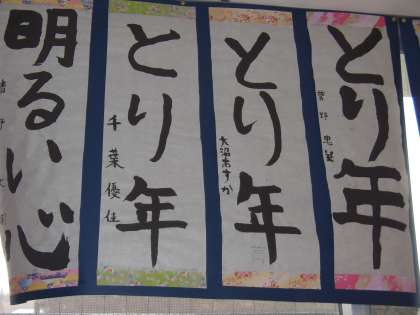 とり年
菅野
とり年
大沼あすか
とり年
千葉優佳
明るい心